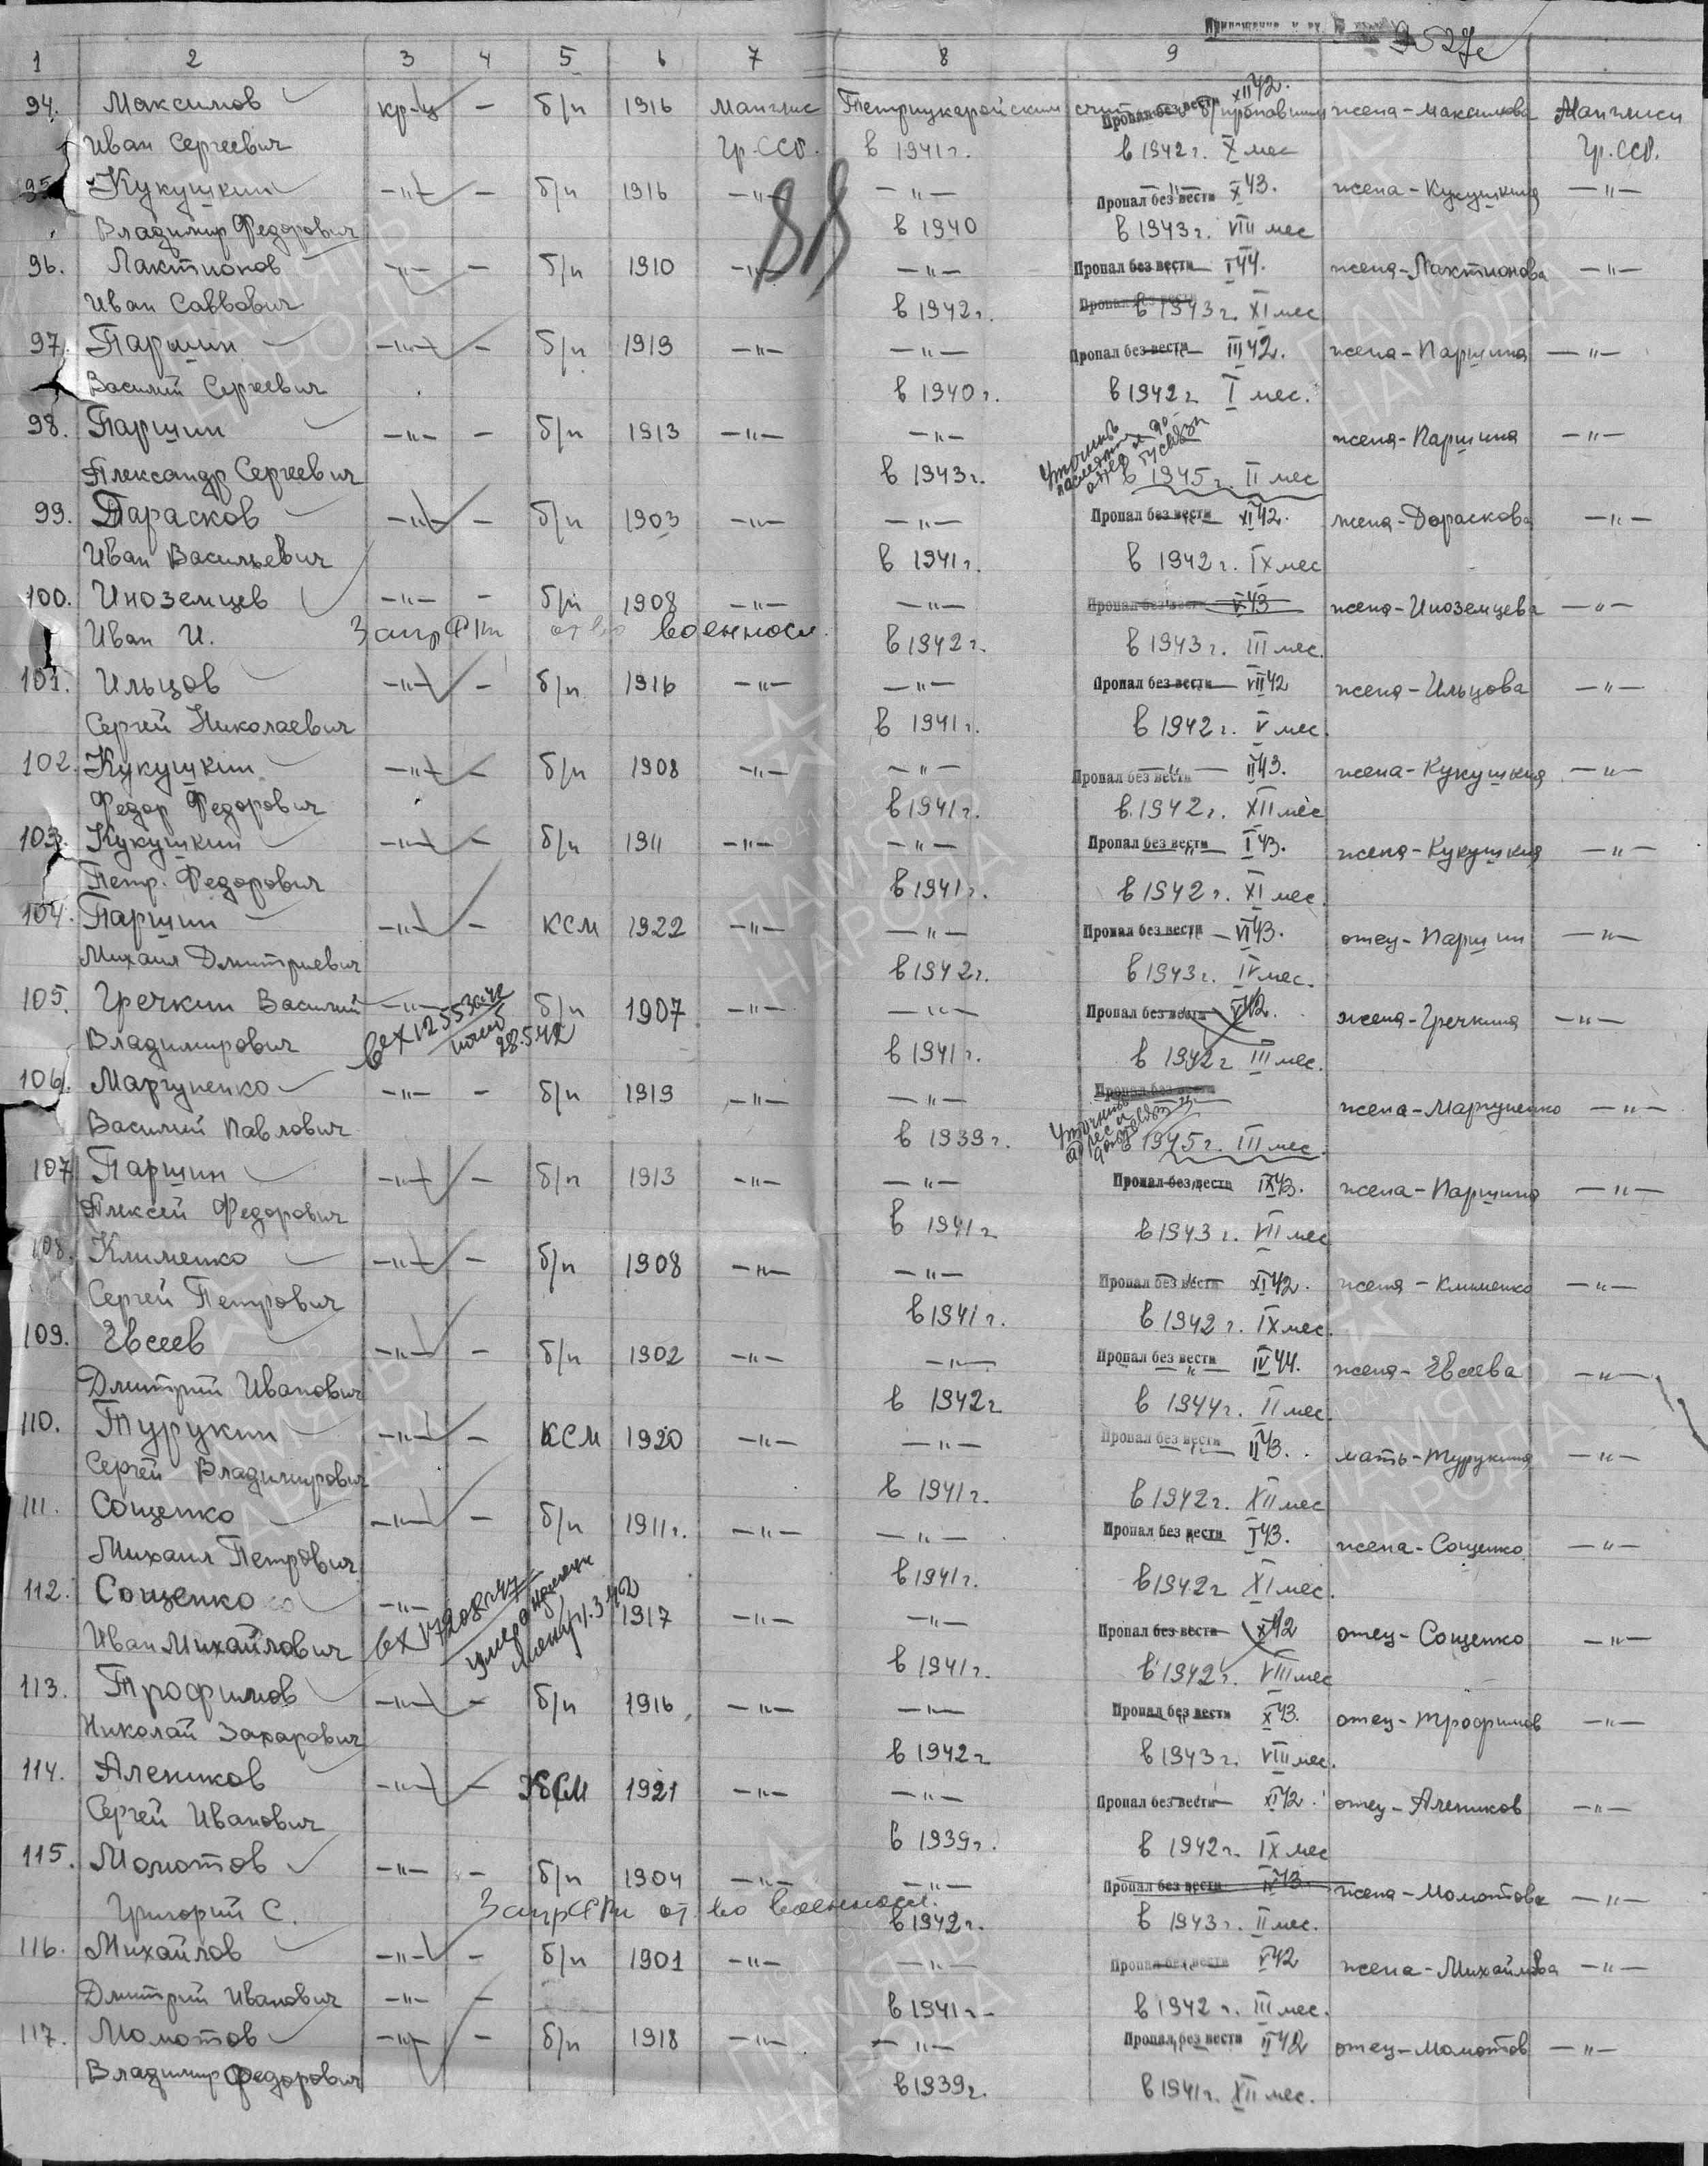 9527с
1 2 3 4 5 6 7 8 9
94. Максимов кр-ц - б/п 1916 Манглис Тетрицкаройским счит. пропавшим Пропал без вести XII 42. жена-Максимова Манглиси
Иван Сергеевич Гр.ССР. в 1941 г. в 1942 г. X мес Гр.ССР.
88
95. Кукушкин -"- - б/п 1916 -"- -"- Пропал без вести X 43. жена-Кукушкина -"-
Владимир Федорович в 1940 в 1943 г. VIII мес
96. Лактионов -"- - б/п 1910 -"- -"- Пропал без вести I 44. жена-Лактионова -"-
Иван Саввович в 1942 г. Пропал без вести в 1943 г. XI мес
97. Паршин -"- - б/п 1919 -"- -"- Пропал без вести III 42. жена-Паршина -"-
Василий Сергеевич в 1940 г. в 1942 г I мес.
98. Паршин -"- - б/п 1913 -"- -"- Уточнить жена-Паршина -"-
Александр Сергеевич в 1943 г. в 1945 г. II мес
99. Дарасков -"- - б/п 1903 -"- -"- Пропал без вести XI 42. жена-Дораскова -"-
Иван Васильевич в 1941 г. в 1942 г. IX мес
100. Иноземцев -"- - б/п 1908 -"- -"- Пропал без вести V 43 жена-Иноземцева -"-
Иван И. военносл. в 1942 г. в 1943 г. III мес.
101. Ильцов -"- - б/п 1916 -"- -"- Пропал без вести VII 42 жена-Ильцова -"-
Сергей Николаевич в 1941 г. в 1942 г. V мес.
102. Кукушкин -"- - б/п 1908 -"- -"- Пропал без вести II 43. жена-Кукушкина -"-
Федор Федорович в 1941 г. в 1942 г. XII мес
103. Кукушкин -"- - б/п 1911 -"- -"- Пропал без вести I 43. жена-Кукушкина -"-
Петр. Федорович в 1941 г. в 1942 г. XI мес.
104. Паршин -"- - КСМ 1922 -"- -"- Пропал без вести VI 43. отец-Паршин -"-
Михаил Дмитриевич в 1942 г. в 1943 г. IV мес.
105. Гречкин Василий -"- б/п 1907 -"- -"- Пропал без вести V 42. жена-Гречкина -"-
Владимирович 28.5.42 в 1941 г. в 1942 г III мес.
106. Маргуненко -"- - б/п 1919 -"- -"- Пропал без вести жена-Маргуненко -"-
Василий Павлович в 1939 г. Уточнить адрес в 1945 г. III мес.
107. Паршин -"- - б/п 1913 -"- -"- Пропал без вести IX 43. жена-Паршина -"-
Алексей Федорович в 1941 г в 1943 г. VII мес
108. Клименко -"- - б/п 1908 -"- -"- Пропал без вести XI 42. жена-Клименко -"-
Сергей Петрович в 1941 г. в 1942 г. IX мес.
109. Евсеев -"- - б/п 1902 -"- -"- Пропал без вести IV 44. жена-Евсеева -"-
Дмитрий Иванович в 1942 г в 1944 г. II мес.
110. Турукин -"- - КСМ 1920 -"- -"- Пропал без вести II 43. мать-Турукина -"-
Сергей Владимирович в 1941 г. в 1942 г. XII мес
111. Сощенко -"- - б/п 1911 г. -"- -"- Пропал без вести I 43. жена-Сощенко -"-
Михаил Петрович в 1941 г. в 1942 г XI мес.
112. Сощенко -"- 1917 -"- -"- Пропал без вести X 42 отец-Сощенко -"-
Иван Михайлович умер в 1941 г. в 1942 г. VIII мес
113. Трофимов -"- - б/п 1916 -"- -"- Пропал без вести X 43. отец-Трофимов -"-
Николай Захарович в 1942 г в 1943 г. VIII мес.
114. Алеников -"- - КСМ 1921 -"- -"- Пропал без вести XI 42. отец-Алеников -"-
Сергей Иванович в 1939 г. в 1942 г. IX мес
115. Момотов -"- - б/п 1904 -"- -"- Пропал без вести IV 43. жена-Момотова -"-
Григорий С. военносл. в 1942 г. в 1943 г. II мес.
116. Михайлов -"- - б/п 1901 -"- -"- Пропал без вести V 42 жена-Михайлова -"-
Дмитрий Иванович -"- - в 1941 г. в 1942 г. III мес.
117. Момотов -"- - б/п 1918 -"- -"- Пропал без вести II 42 отец-Момотов -"-
Владимир Федорович в 1939 г. в 1941 г. XII мес.